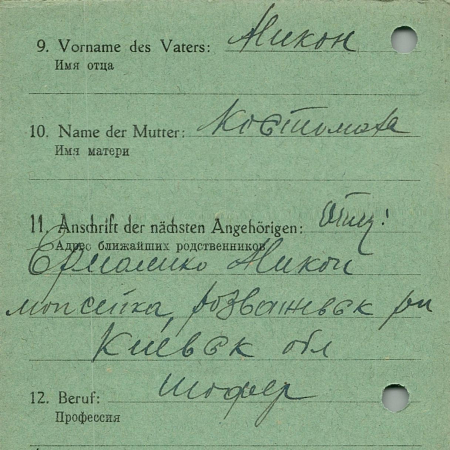 9. Vorname des Vaters: Никон
Имя отца
10. Name der Mutter:
Имя матери
11. Anschrift der nächsten Angehörigen: Отец:
Адрес ближайших родственников
Никон
розважевск рн
Киевск обл
12. Beruf: шофер
Профессия